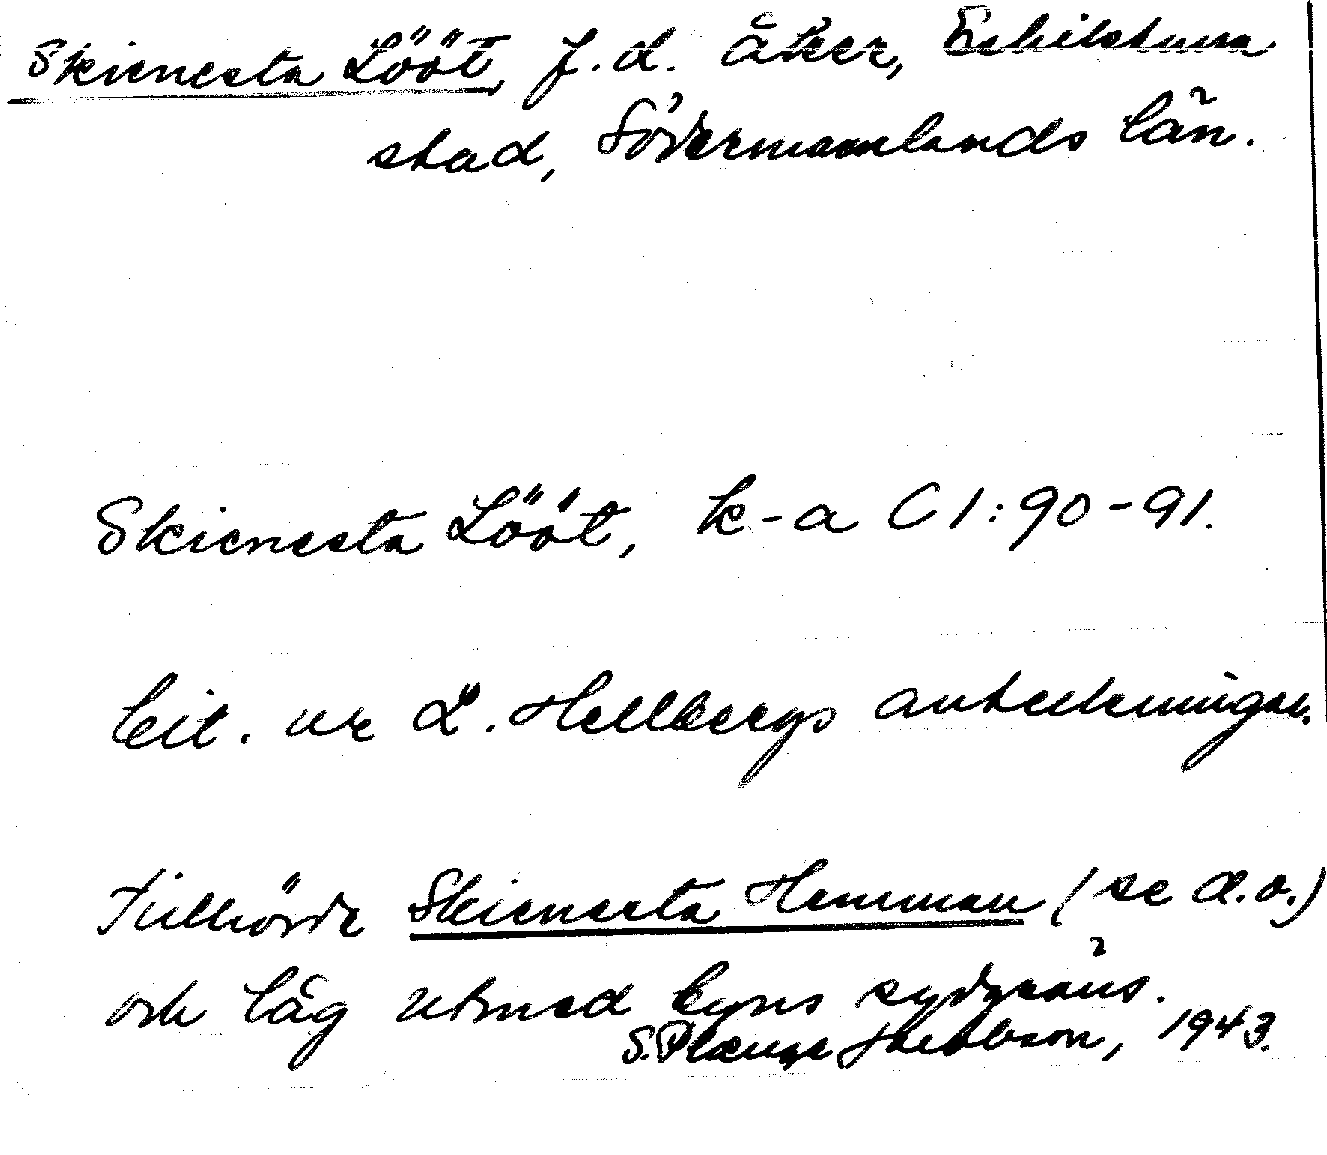 Skienesta Lööt, f.d. åker, Eskilstuna
stad, Södermanlands län.
Skienesta Lööt, k-a C 1:90-91.
Cit. ur L. Hellbergs anteckningar.
Tillhörde Skienesta Hemman (se d.o.)
och låg utmed byns sydgräns.
S. Plænge Jacobson, 1943.